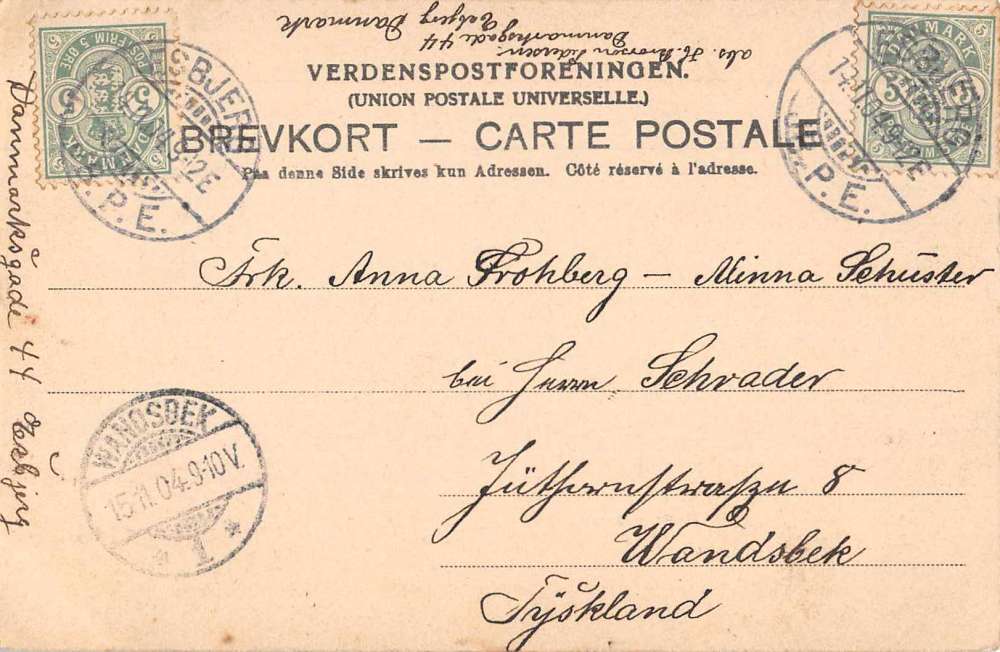 abs. H. Brorson Pedersen.
Danmarksgade 44
Esbjerg Danmark
DANMARK
POSTFRIM. 5 ØRE
5
5
DANMARK
5
ESBJERG
9-12E
P.E.
ESBJERG
9-12E
P.E.
VERDENSPOSTFORENINGEN.
(UNION POSTALE UNIVERSELLE.)
BREVKORT — CARTE POSTALE
Paa denne Side skrives kun Adressen. Côté réservé à l'adresse.
Frk. Anna Frohberg — Minna Schuster
bei Herrn Schrader
Jüthornstraße 8
Wandsbek
Tyskland
WANDSBEK
15.11.04.9-10V.
* 1 *
Danmarksgade 44 Esbjerg